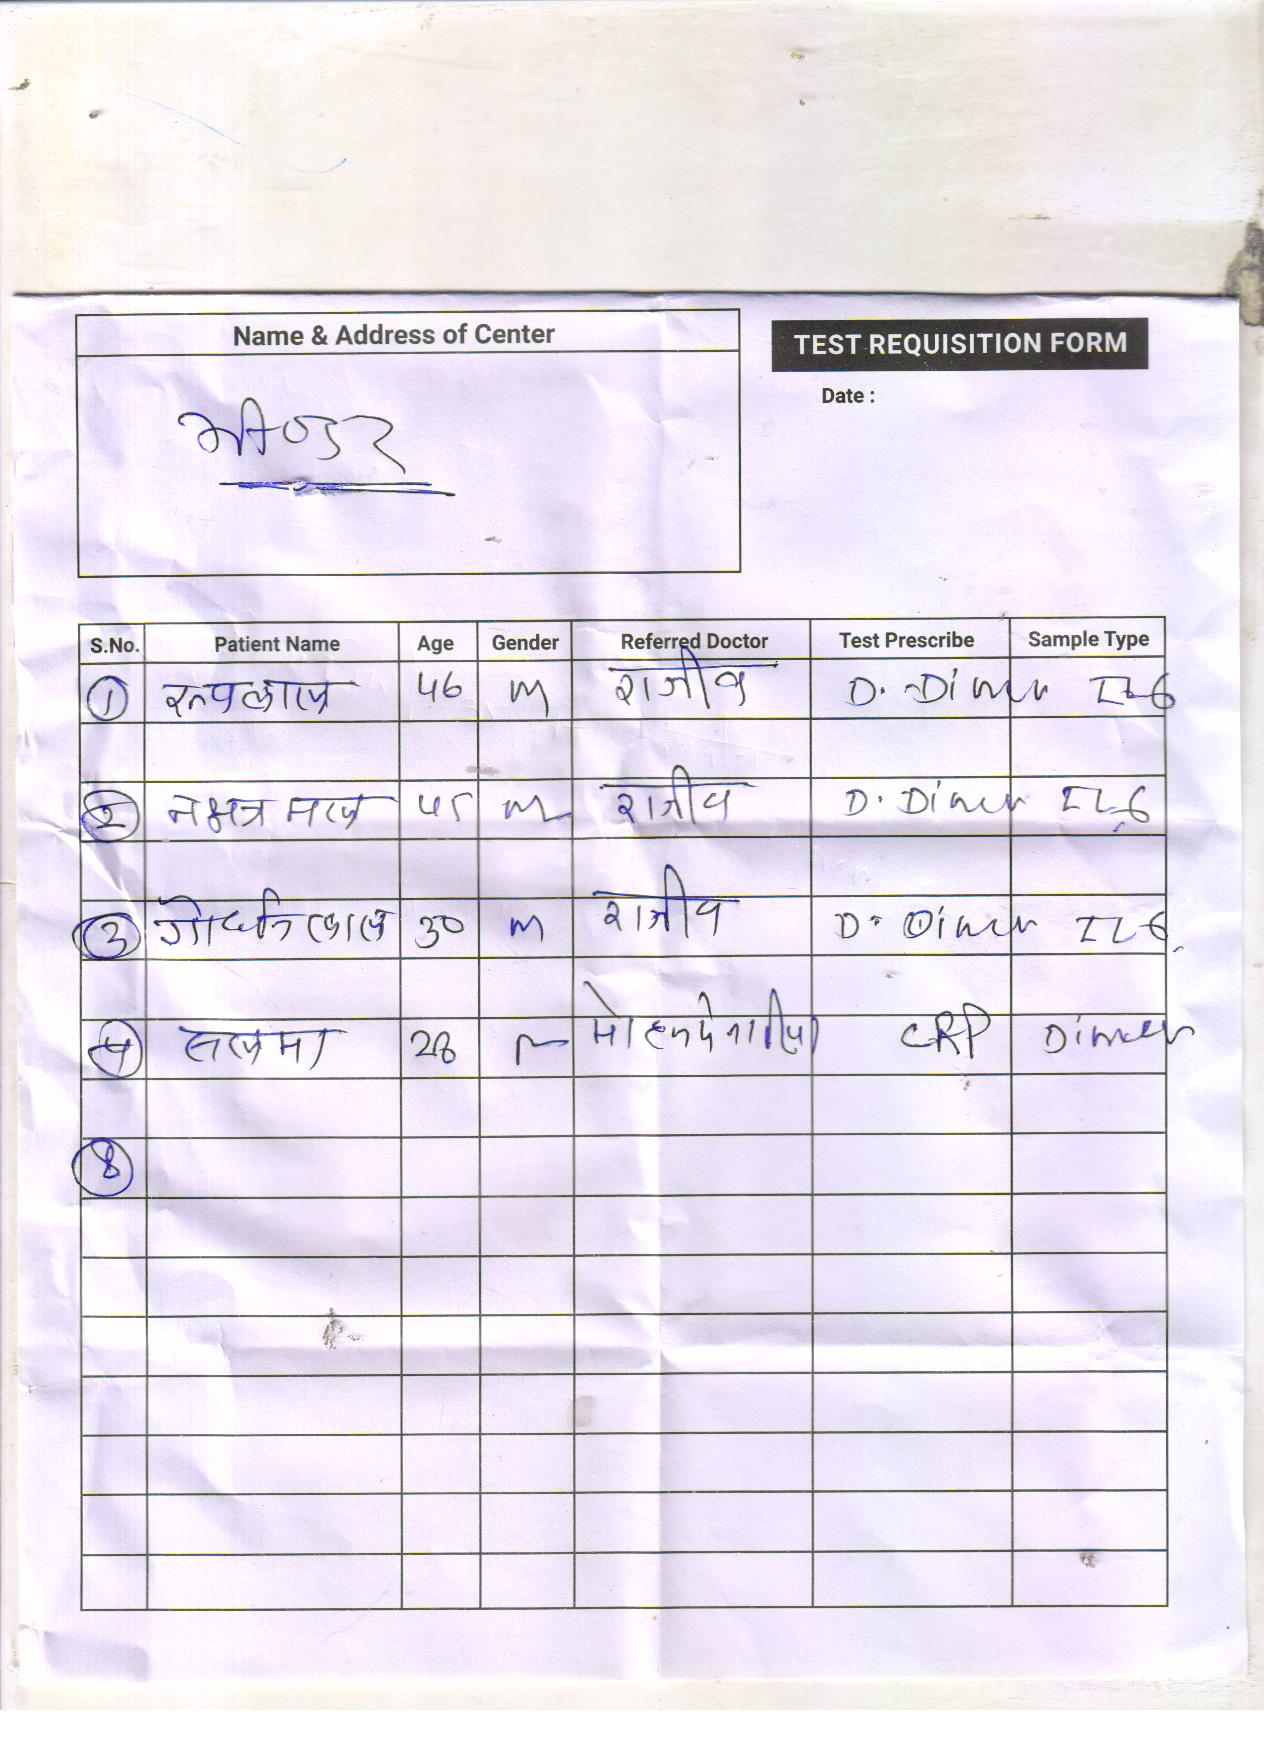 Name & Address of Center
TEST REQUISITION FORM
Date :
भीण्डर
S.No. Patient Name Age Gender Referred Doctor Test Prescribe Sample Type
1 रुपलाल 46 m राजीव D. Dimer IL6
2 नक्षत्र मल 45 m राजीव D. Dimer IL6
3 लाल 30 m राजीव D. Dimer IL6
4 सलमा 28 CRP Dimer
8